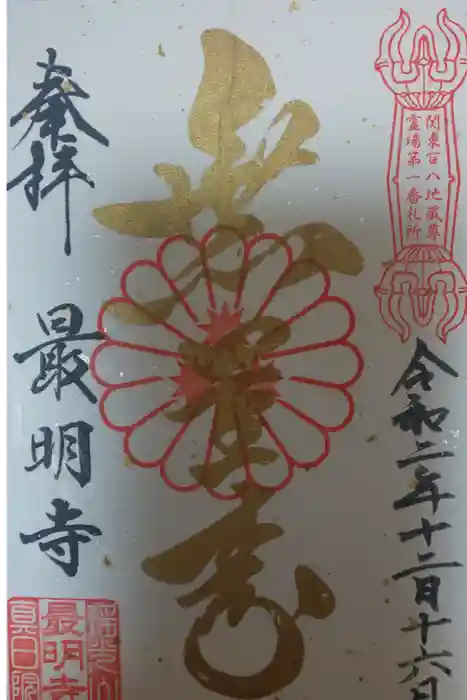 関東百八地蔵尊
靈場第一番札所
令和二年十二月十六日
無量寿
奉拝
最明寺
最明寺